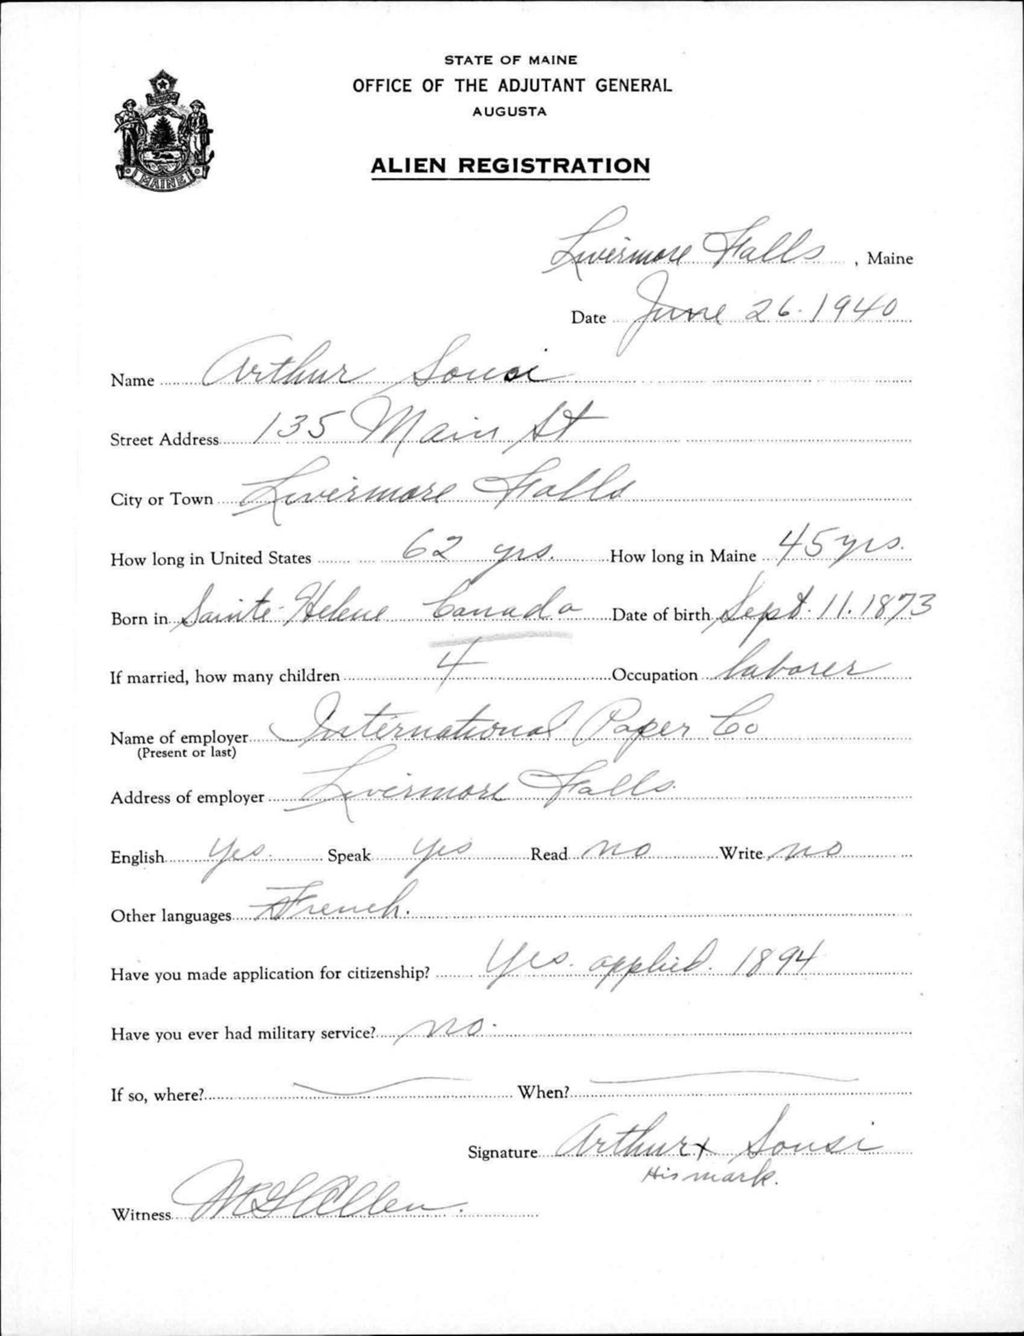 STATE OF MAINE
OFFICE OF THE ADJUTANT GENERAL
AUGUSTA
ALIEN REGISTRATION
MAINE
Livermore Falls, Maine
Date June 26. 1940
Name Arthur Sousi
Street Address 135 Main St
City or Town Livermore Falls
How long in United States 62 yrs. How long in Maine 45 yrs.
Born in Sainte-Helene Canada Date of birth Sept. 11. 1873
If married, how many children 4 Occupation laborer
Name of employer International Paper Co
(Present or last)
Address of employer Livermore Falls.
English Yes. Speak Yes Read no Write no
Other languages French.
Have you made application for citizenship? Yes. applied. 1894
Have you ever had military service? no.
If so, where? When?
Signature Arthur x Sousi
His mark.
Witness Allen.